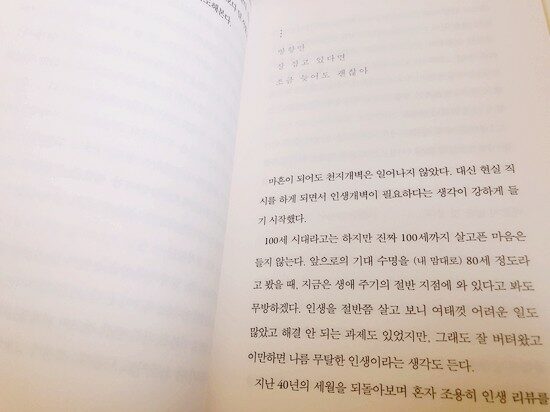 방향만
잘 잡고 있다면
조금 늦어도 괜찮아
마흔이 되어도 천지개벽은 일어나지 않았다. 대신 현실 직
시를 하게 되면서 인생개벽이 필요하다는 생각이 강하게 들
기 시작했다.
100세 시대라고는 하지만 진짜 100세까지 살고픈 마음은
들지 않는다. 앞으로의 기대 수명을 (내 맘대로) 80세 정도라
고 봤을 때, 지금은 생애 주기의 절반 지점에 와 있다고 봐도
무방하겠다. 인생을 절반쯤 살고 보니 여태껏 어려운 일도
많았고 해결 안 되는 과제도 있었지만, 그래도 잘 버텨왔고
이만하면 나름 무탈한 인생이라는 생각도 든다.
지난 40년의 세월을 되돌아보며 혼자 조용히 인생 리뷰를